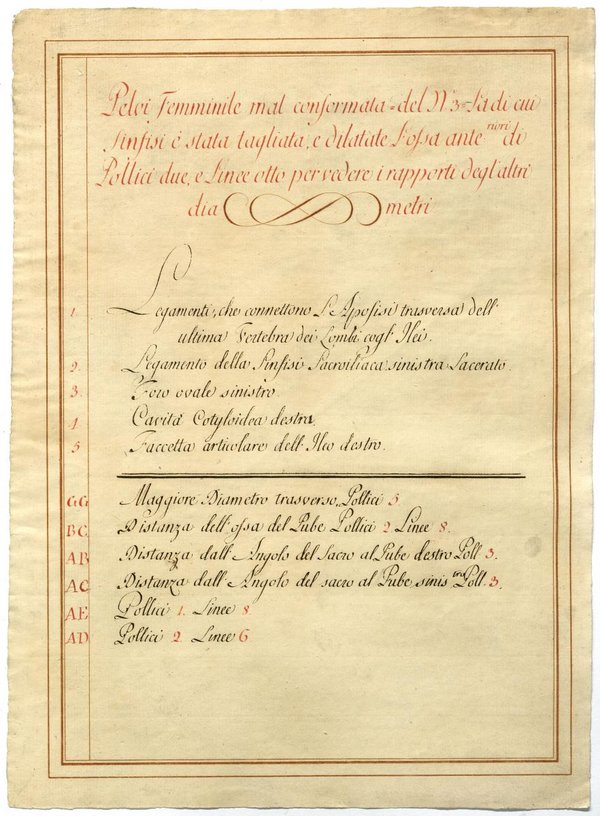 Pelvi Femminile mal conformata = del N.º 3 = La di cui
Sinfisi è stata tagliata, e dilatate l'ossa anteriori di
Pollici due, e Linee otto per vedere i rapporti degl'altri
diametri
1. Legamenti, che connettono l'Apofisi trasversa dell'
ultima Vertebra dei Lombi cogl'Ilei.
2. Legamento della Sinfisi Sacroiliaca sinistra Lacerato.
3. Foro ovale sinistro.
4. Cavità Cotyloidea destra.
5 Faccetta articolare dell'Ileo destro.
GG Maggiore Diametro trasverso, Pollici 5
BC Distanza dell'ossa del Pube Pollici 2 Linee 8.
AB Distanza dall'Angolo del Sacro al Pube destro Poll 3.
AC Distanza dall'Angolo del sacro al Pube sinistro Poll. 3.
AE Pollici 1. Linee 8
AD Pollici 2. Linee 6